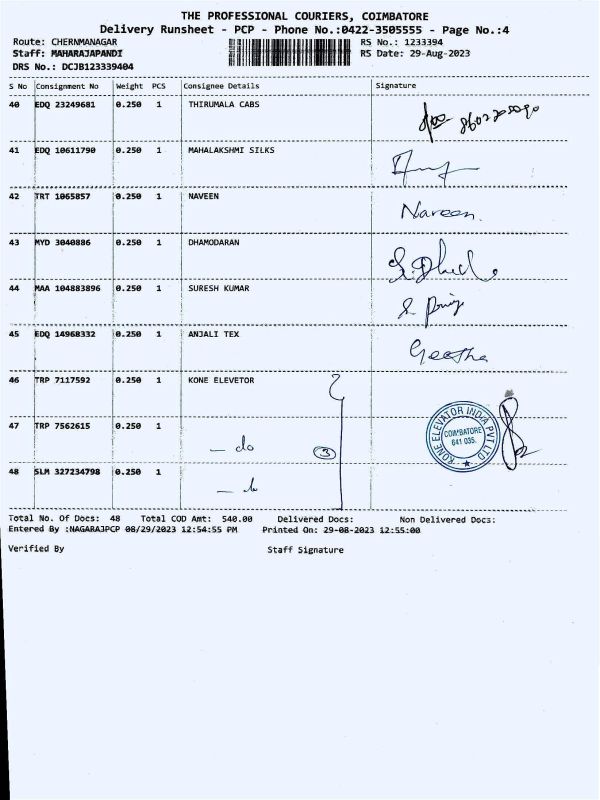 THE PROFESSIONAL COURIERS, COIMBATORE
Delivery Runsheet - PCP - Phone No.:0422-3505555 - Page No.:4
Route: CHERNMANAGAR RS No.: 1233394
Staff: MAHARAJAPANDI RS Date: 29-Aug-2023
DRS No.: DCJB123339404
S No Consignment No Weight PCS Consignee Details Signature
40 EDQ 23249681 0.250 1 THIRUMALA CABS
41 EDQ 10611790 0.250 1 MAHALAKSHMI SILKS
42 TRT 1065857 0.250 1 NAVEEN Naveen.
43 MYD 3040886 0.250 1 DHAMODARAN
44 MAA 104883896 0.250 1 SURESH KUMAR
45 EDQ 14968332 0.250 1 ANJALI TEX Geetha
46 TRP 7117592 0.250 1 KONE ELEVETOR
KONE ELEVATOR INDIA PVT LTD
COIMBATORE
641 035.
47 TRP 7562615 0.250 1 - do 3
48 SLM 327234798 0.250 1 - do
Total No. Of Docs: 48 Total COD Amt: 540.00 Delivered Docs: Non Delivered Docs:
Entered By :NAGARAJPCP 08/29/2023 12:54:55 PM Printed On: 29-08-2023 12:55:00
Verified By Staff Signature